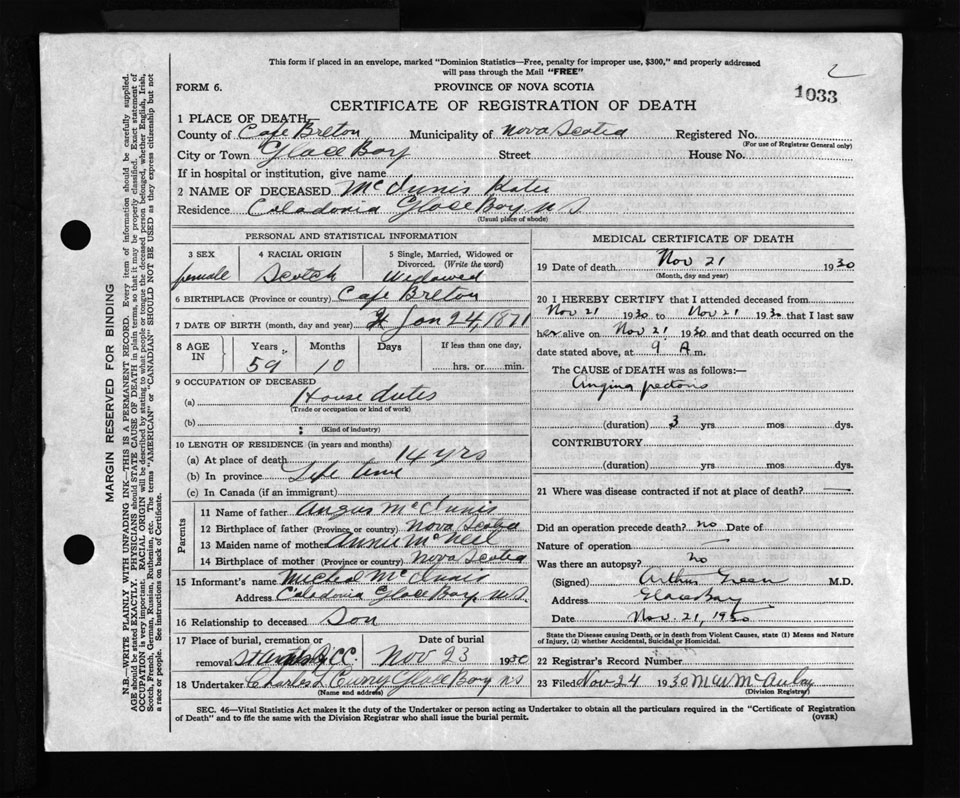 This form if placed in an envelope, marked "Dominion Statistics—Free, penalty for improper use, $300," and properly addressed
will pass through the Mail "FREE"
2
FORM 6.
PROVINCE OF NOVA SCOTIA
1033
CERTIFICATE OF REGISTRATION OF DEATH
1 PLACE OF DEATH
County of Cape Breton Municipality of Nova Scotia Registered No.
(For use of Registrar General only)
City or Town Glace Bay Street House No.
If in hospital or institution, give name
2 NAME OF DECEASED McInnis Katie
Residence Caledonia Glace Bay N S
(Usual place of abode)
PERSONAL AND STATISTICAL INFORMATION
3 SEX 4 RACIAL ORIGIN 5 Single, Married, Widowed or Divorced. (Write the word)
female Scotch Widowed
6 BIRTHPLACE (Province or country) Cape Breton
7 DATE OF BIRTH (month, day and year) Jan 24, 1871
8 AGE IN Years Months Days If less than one day,
59 10 hrs. or min.
9 OCCUPATION OF DECEASED
(a) House duties
(Trade or occupation or kind of work)
(b)
(Kind of industry)
10 LENGTH OF RESIDENCE (in years and months)
(a) At place of death 14 yrs
(b) In province Life time
(c) In Canada (if an immigrant)
Parents
11 Name of father Angus McInnis
12 Birthplace of father (Province or country) Nova Scotia
13 Maiden name of mother Annie McNeil
14 Birthplace of mother (Province or country) Nova Scotia
15 Informant's name Micheal McInnis
Address Caledonia Glace Bay, N.S.
16 Relationship to deceased Son
17 Place of burial, cremation or removal C.C. Date of burial Nov 23 1930
18 Undertaker Charles L Curry Glace Bay N S
(Name and address)
MEDICAL CERTIFICATE OF DEATH
19 Date of death Nov 21 1930
(Month, day and year)
20 I HEREBY CERTIFY that I attended deceased from
Nov 21 1930 to Nov 21 1930 that I last saw
her alive on Nov 21 1930 and that death occurred on the
date stated above, at 9 A m.
The CAUSE OF DEATH was as follows:—
Angina pectoris
(duration) 3 yrs mos dys.
CONTRIBUTORY
(duration) yrs mos dys.
21 Where was disease contracted if not at place of death?
Did an operation precede death? no Date of
Nature of operation
Was there an autopsy? no
(Signed) Arthur Green M.D.
Address Glace Bay
Date Nov. 21, 1930
State the Disease causing Death, or in death from Violent Causes, state (1) Means and Nature
of Injury, (2) whether Accidental, Suicidal or Homicidal.
22 Registrar's Record Number
23 Filed Nov 24 1930 McAulay
(Division Registrar)
SEC. 46—Vital Statistics Act makes it the duty of the Undertaker or person acting as Undertaker to obtain all the particulars required in the "Certificate of Registration
of Death" and to file the same with the Division Registrar who shall issue the burial permit.
(OVER)
MARGIN RESERVED FOR BINDING
N.B.—WRITE PLAINLY WITH UNFADING INK—THIS IS A PERMANENT RECORD. Every item of information should be carefully supplied.
AGE should be stated EXACTLY. PHYSICIANS should STATE CAUSE OF DEATH in plain terms, so that it may be properly classified. Exact statement of
OCCUPATION is very important. RACIAL ORIGIN will be described by stating to what people or tongue the deceased person belonged, whether English, Irish,
Scotch, French, German, Russian, Ruthenian, etc. The terms "AMERICAN" or "CANADIAN" SHOULD NOT BE USED as they express citizenship but not
a race or people. See instructions on back of Certificate.